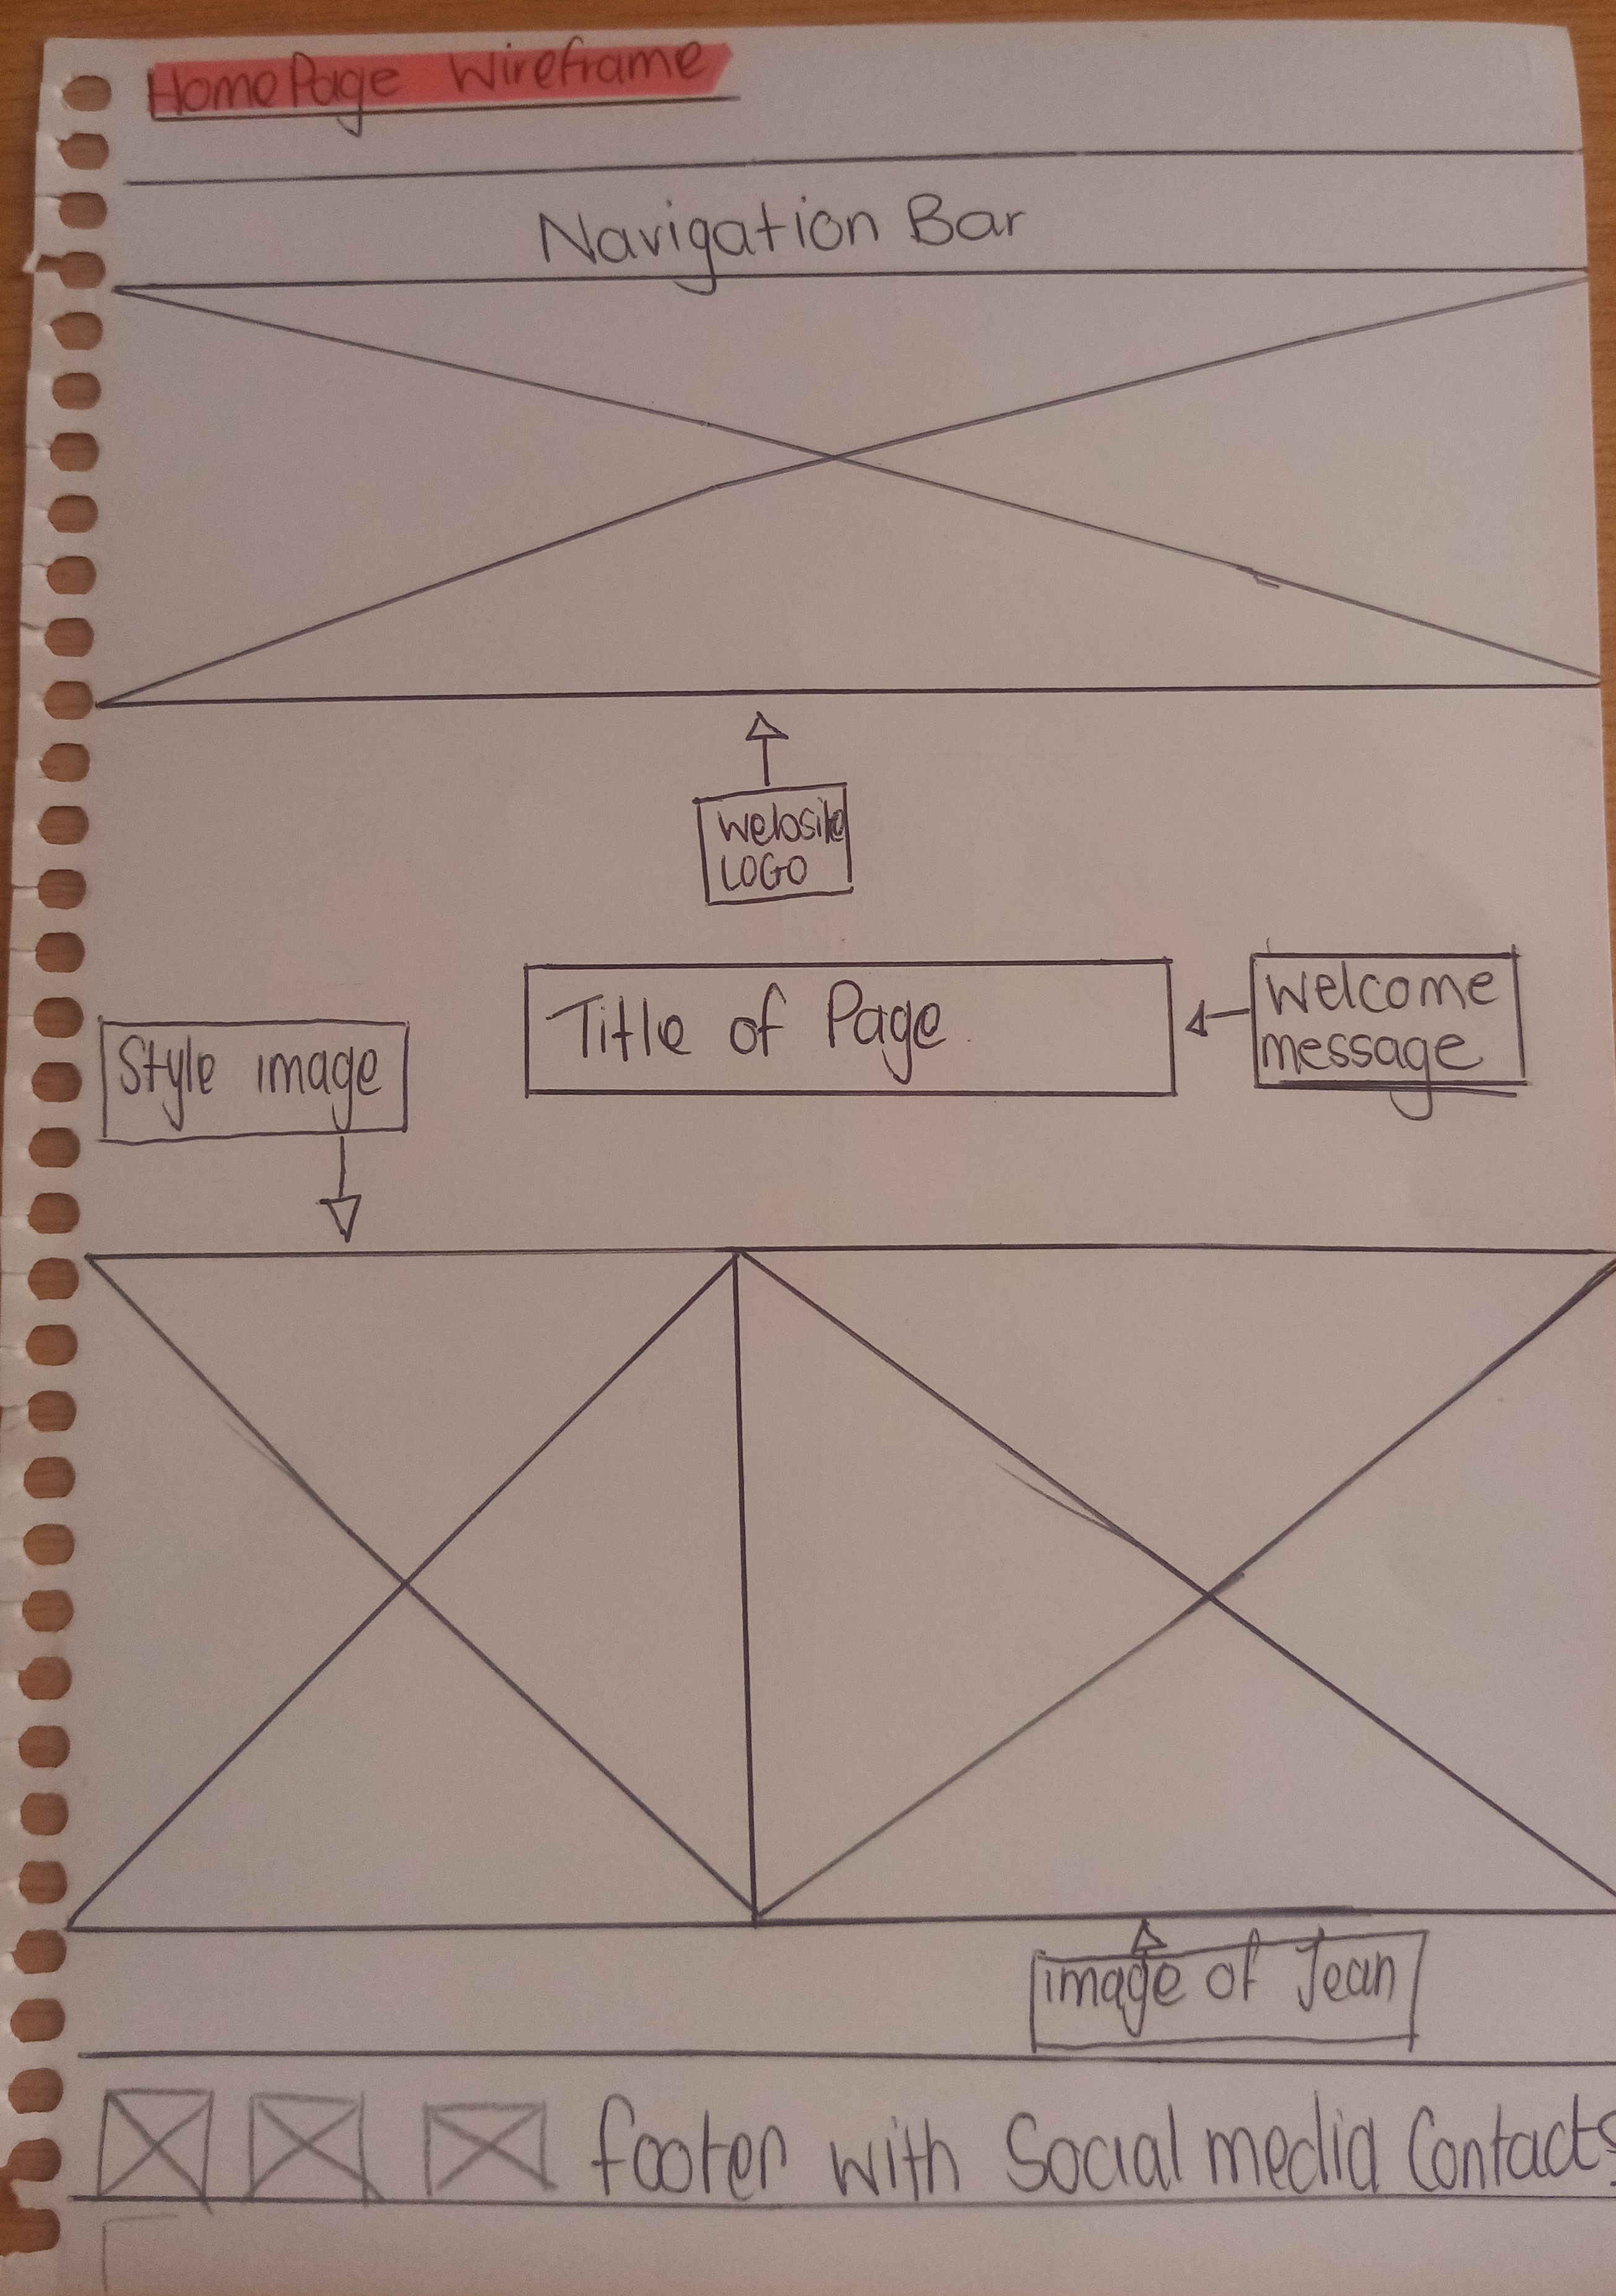 HomePage Wireframe
Navigation Bar
Website
LOGO
Title of Page.
Welcome
message
Style image
image of Jean
footer with Social media Contacts